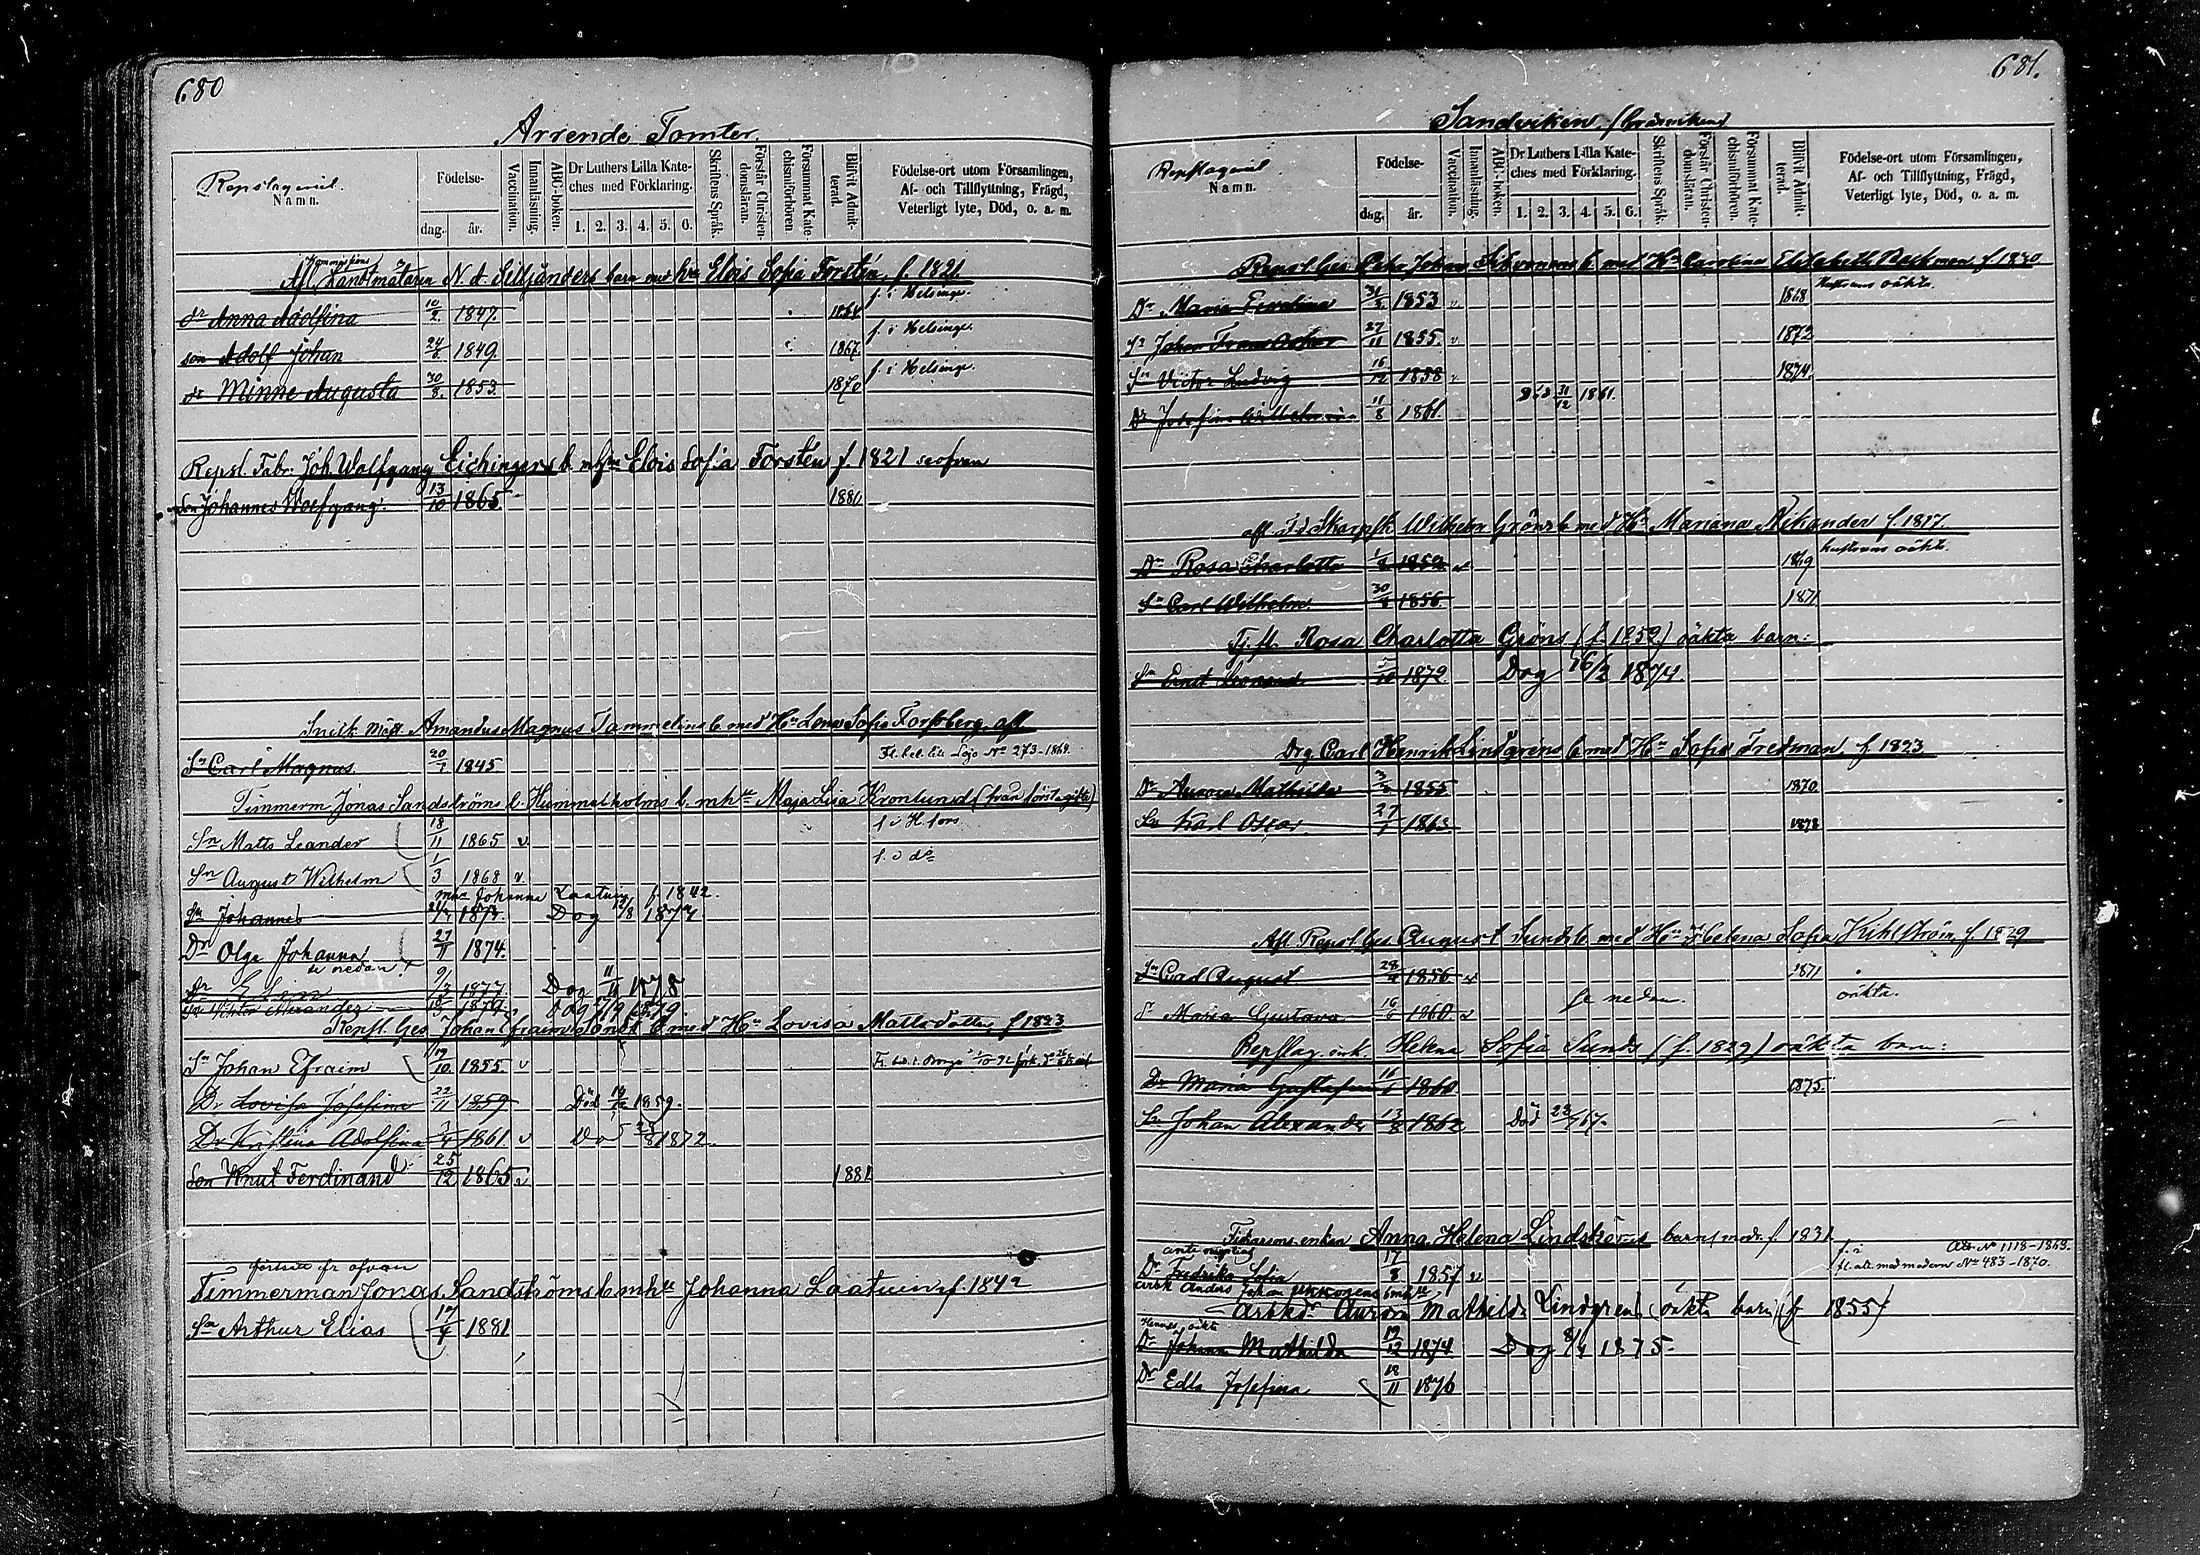 680
Arrende Tomter
Repslageriet.
Namn.
Födelse-
dag.
år.
Vaccination.
Innanläsning.
ABC-boken.
Dr Luthers Lilla Kate-
ches med Förklaring.
1. 2. 3. 4. 5. 6.
Skriftens Språk.
Förstår Christen-
domsläran.
Försummat Kate-
chismiförhören
Blifvit Admit-
terad.
Födelse-ort utom Församlingen,
Af- och Tillflyttning, Frägd,
Veterligt lyte, Död, o. a. m.
Afl. N. A. barn med hu Elois Sofia Forstén, f. 1821
dr Anna Adolfina 10/2. 1847. 1864 f. i Helsinge.
son Adolf Johan 24/6 1849. 1867. f. i Helsinge.
dr Minne Augusta 30/8. 1853. 1870 f. i Helsinge.
Repsl. Fabr. Joh Wolfgang Eichingers b. mhu Elois Sofia Forsten f. 1821 se ofvan
son Johannes Wolfgang. 13/10 1865 1880
Snick. Mäst. Amandus Magnus Tammelins b. med Hu Lena Sofia Forsberg, afl
Sn Carl Magnus. 20/1 1845 No 273-1869.
Timmerm Jonas Sandströms b. Hummelholms b. mhu Maja Lisa Kronlund (från första gifte)
Sn Matts Leander 18/11 1865 v f. i H. fors
Sn August Wilhelm 1/3 1868 v. f. i do
mhu Johanna Laatuin f. 1842.
Sn Johannes Dog 1874
Dr Olga Johanna 27/11 1874.
se nedan!
Dr 9/3 1877 Dog 1878.
Sn Viktor Alexander 1879. Dog 1879.
Repsl. Ges. Johan Efraim b med Hu Lovisa Mattsdotter f 1823
Sn Johan Efraim 19/10 1855 v
Dr Lovisa Josefina 22/11 1859 Död 1859.
Dr Kristina Adolfina 1861. v Död 1872.
Son Knut Ferdinand 25/12 1865 v 1881
fortsätt fr ofvan
Timmerman Jonas Sandströms b. mhu Johanna Laatuin f. 1842
Sn Arthur Elias 17/4 1881
681.
Sandviken. (Gräsviken)
Repslageriet
Namn.
Födelse-
dag.
år.
Vaccination.
Innanläsning.
ABC-boken.
Dr Luthers Lilla Kate-
ches med Förklaring.
1. 2. 3. 4. 5. 6.
Skriftens Språk.
Förstår Christen-
domsläran.
Försummat Kate-
chismiförhören.
Blifvit Admit-
terad.
Födelse-ort utom Församlingen,
Af- och Tillflyttning, Frägd,
Veterligt lyte, Död, o. a. m.
Repsl. Ges Johan b. med Hu Carolina Elisabeth f. 1830
Dr Maria 31/3 1853 v 1868 Hustruns oäkta.
Sn Johan Frans Oskar 27/11 1855. v 1872
Sn Victor Ludvig 16/12 1858 v 1874.
Dr Josefina Wilhelmina 11/8 1861 Död 31/12 1861.
afl Wilhelm Gröns b med Hu Mariana Nikander f. 1817.
Dr Rosa Charlotta 1852 v 1869 hustruns oäkta.
Sn Carl Wilhelm 1856 1871
Tj. fl. Rosa Charlotta Gröns (f. 1852) oäkta barn:
Sn Ernst Leonard 1872 Dog 16/2 1874
Drg Carl Henrik Lindgrens b med Hu Sofia Fredman f. 1823
Dr Aurora Mathilda 1855 1870
Sn Karl Oscar. 27/1 1863 1878
Afl. Repsl. Ges August Sunds b med Hu Helena Sofia f. 1829
Sn Carl August 1856 v 1871
Dr Maria Gustava 16/6 1860 v se nedan. oäkta.
Repslag. enk. Helena Sofia Sunds (f. 1829) oäkta barn:
Dr Maria Gustafva 16/6 1860 1875.
Sn Johan Alexander 1862 Död
enkan Anna Helena Lindströms barn (mod. f. 1831
Dr Fredrika Sofia 17/8 1857 v f. i Att. No 1118-1863.
fl. att. med modern No 483-1870.
Arbk Anders Johan b mhu
Arbkdr Aurora Mathilda Lindgrens (oäkta barn) (f 1855)
Hennes oäkta
Dr Johanna Mathilda 19/12 1874 Dog 1875.
Dr Edla Josefina 18/11 1876